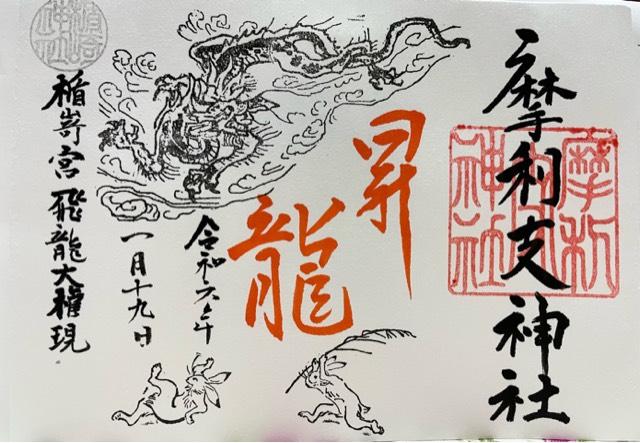 摩利支神社
摩利
支
神社
昇
龍
令和六年
一月十九日
楯嵜宮飛龍大権現
楯崎
神社